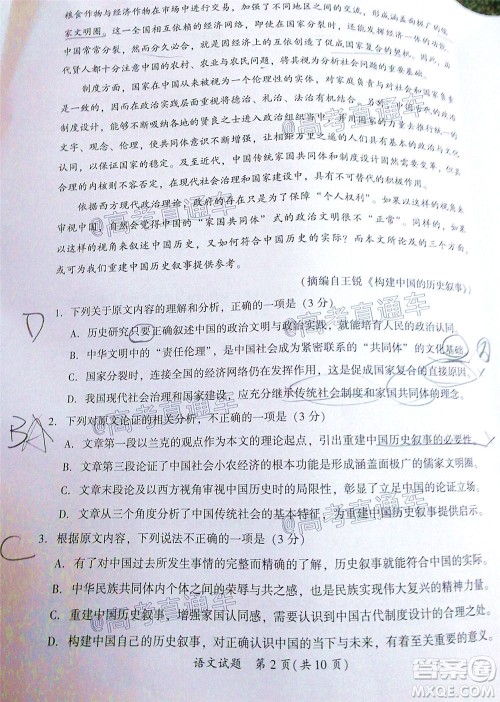 粮食作物与经济作物在市场中进行交易，促使中国成为一个涵盖面极广的儒
家文明圈。这一全国相互依赖的经济网络，即便在国家分裂时，还继续起作用，
中国常常分裂，然而分久必合，就是因为基层社会有共同的经济契合。因此，古
代贤人都十分注意中国的农村、农业与农民问题，将其视为分析社会问题的重要
基础。
制度方面，国家在中国从来被视为一个伦理性的实体，
与政治制度的建设也因此特别重视德治、礼治、法治有机统一。
制度设计，能使社会各阶层的贤良之士进入政治组织当中，
度、文化观念、伦理，使共同体意识不断增强，让拥有共同政治文化的人们共同
以保证国家的稳定。因此，中国传统家国共同体的思想资源与制度设计，抛开其
不合时宜的部分，在现代社会治理和国家建设中，具有不可替代的积极作用。
依据西方现代政治理论，国家的存在是为了保障“个人权利”。因此，用这一
视角审视中国，自然会觉得中国的“家国共同体”式的政治文明很不“正常”。用怎
样的视角来叙述中国历史，又如何符合中国历史的实际？而本文所涉及的三个方
面，或许可以为我们构建中国的历史叙事提供参考。
（摘编自王锐《构建中国的历史叙事》）
D
1. 下列关于原文内容的理解和分析，正确的一项是（3 分）
A. 历史研究只要正确叙述中国的政治文明与义务意识，就能培育人民的政治认同。
B. 中华文明中的“责任伦理”，是中国社会成为紧密联系的“共同体”的文化基础。
C. 国家分裂时，社会基层的经济网络仍在发挥作用，这是促成国家复合的直接原因。
D. 我国现代社会治理和国家建设，应充分继承传统社会制度和家国共同体的理念。
BA
2. 下列对原文论证的相关分析，不正确的一项是（3 分）
A. 文章第一段以兰克的观点作为本文的理论起点，引出重建中国历史叙事的必要性。
B. 文章第三段论证了中国社会小农经济的根本功能是形成涵盖面极广的儒家文明圈。
C. 文章末段论及以西方视角审视中国历史时的局限性，彰显了立足中国的理论立场。
D. 文章从三个角度分析了中国共同体的基本特征，为重建中国的历史叙事提供了基础。
C
3. 根据原文内容，下列说法不正确的一项是（3 分）
A. 有了对中国过去所发生事情的完整而正确的了解，历史叙事就能符合中国的实际。
B. 中华民族共同体内个体之间的荣辱与共之感，也是中国实现伟大复兴的精神力量。
C. 重建中国历史叙事，增强家国认同感，需要认识到中国古代制度设计的合理之处。
D. 构建中国自己的历史叙事，需要关注中国的当下与未来，有开阔而整全的视野。
语文试题 第 2 页（共 10 页）
高考直通车
答案圈